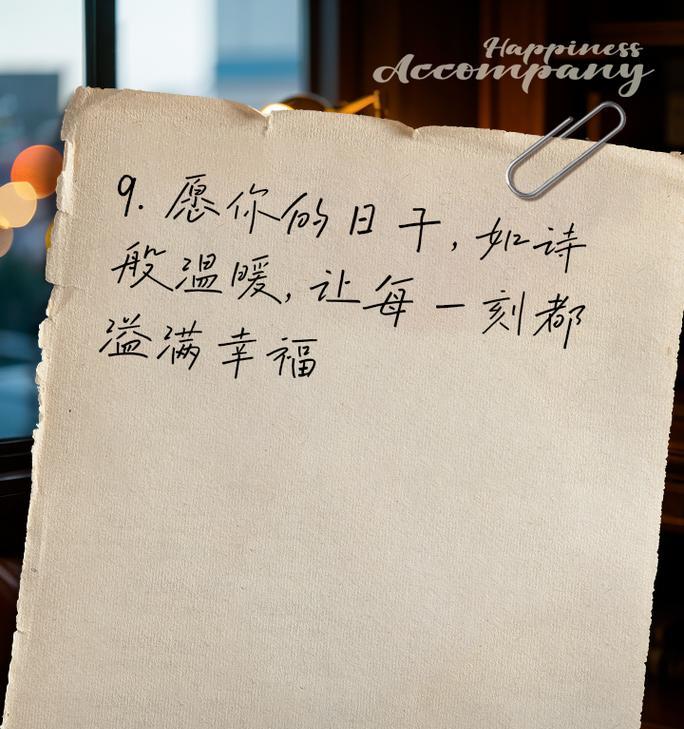 Happiness
Accompany
9. 愿你的日子,如诗
般温暖,让每一刻都
溢满幸福